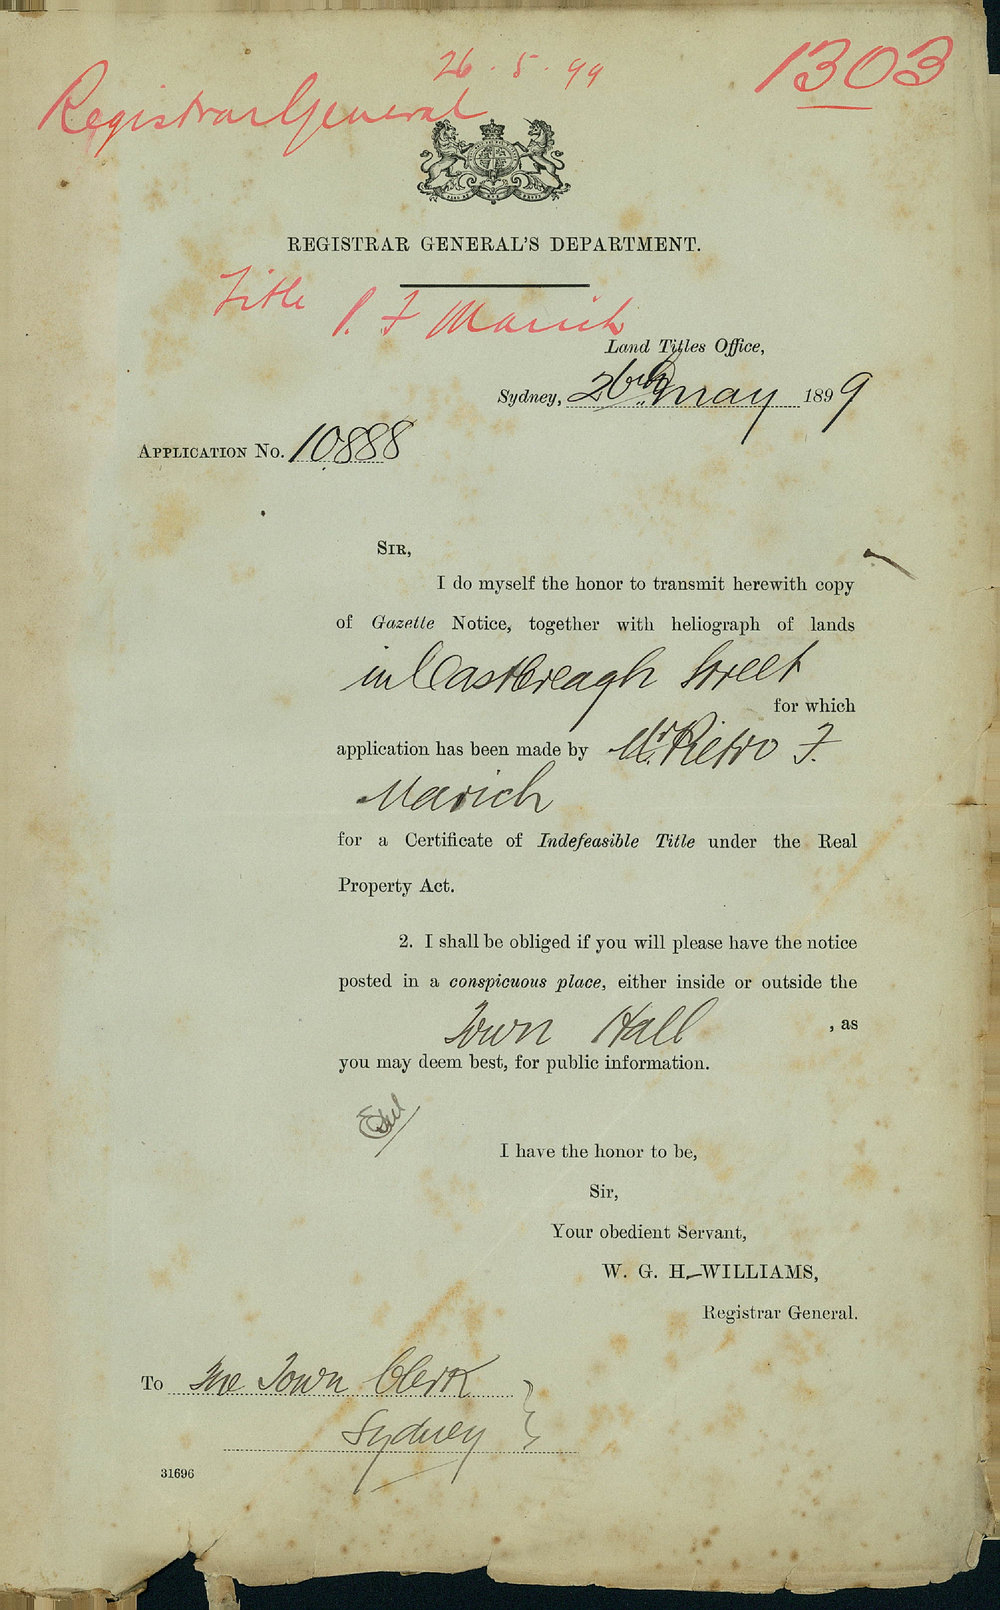 26.5.99
1303
Registrar General
REGISTRAR GENERAL'S DEPARTMENT.
Title P. F Marich
Land Titles Office,
Sydney, 26th May 1899
APPLICATION No. 10888
SIR,
I do myself the honor to transmit herewith copy
of Gazette Notice, together with heliograph of lands
in Castlereagh Street
for which
application has been made by Mr. Pietro F.
Marich
for a Certificate of Indefeasible Title under the Real
Property Act.
2. I shall be obliged if you will please have the notice
posted in a conspicuous place, either inside or outside the
Town Hall , as
you may deem best, for public information.
I have the honor to be,
Sir,
Your obedient Servant,
W. G. H. WILLIAMS,
Registrar General.
To The Town Clerk
Sydney
31696